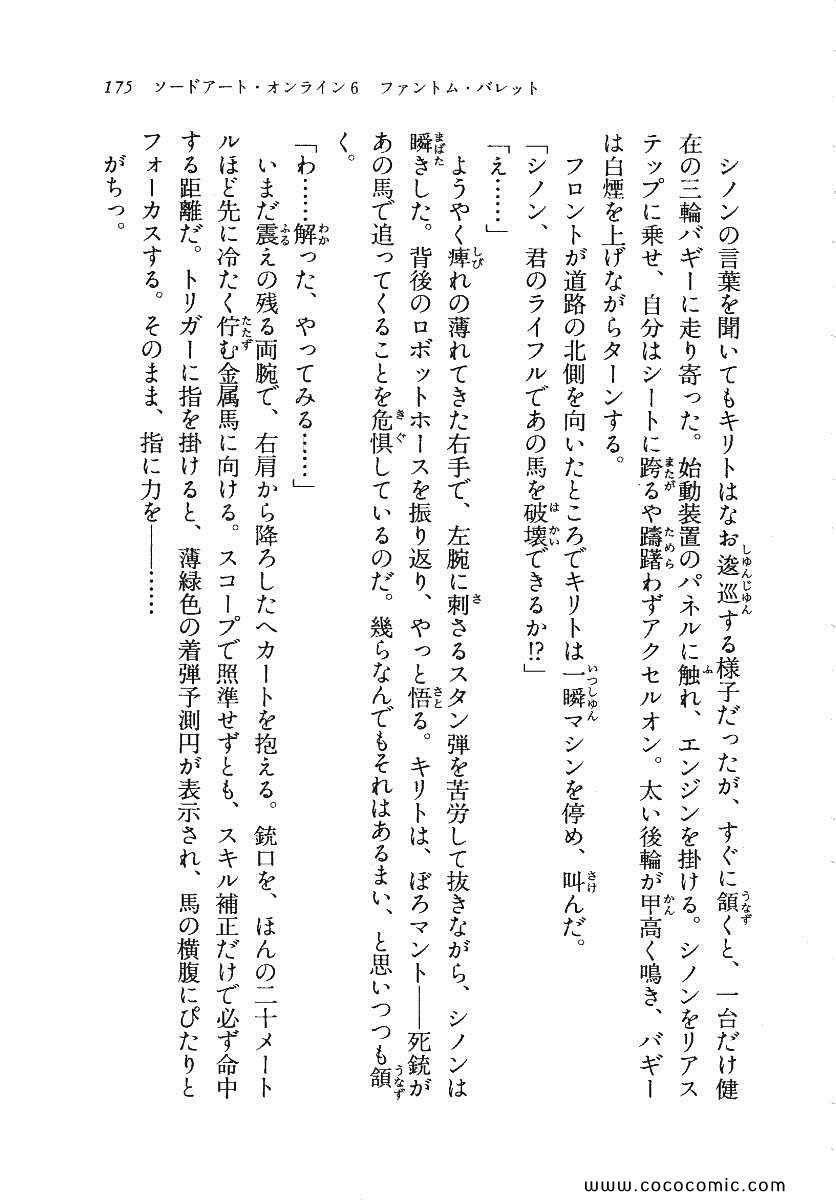 175　ソードアート・オンライン6　ファントム・バレット
シノンの言葉を聞いてもキリトはなお逡巡する様子だったが、すぐに頷くと、一台だけ健
在の三輪バギーに走り寄った。始動装置のパネルに触れ、エンジンを掛ける。シノンをリアス
テップに乗せ、自分はシートに跨るや躊躇わずアクセルオン。太い後輪が甲高く鳴き、バギー
は白煙を上げながらターンする。
フロントが道路の北側を向いたところでキリトは一瞬マシンを停め、叫んだ。
「シノン、君のライフルであの馬を破壊できるか!?」
「え……」
ようやく痺れの薄れてきた右手で、左腕に刺さるスタン弾を苦労して抜きながら、シノンは
瞬きした。背後のロボットホースを振り返り、やっと悟る。キリトは、ぼろマント――死銃が
あの馬で追ってくることを危惧しているのだ。幾らなんでもそれはあるまい、と思いつつも頷
く。
「わ……解った、やってみる……」
いまだ震えの残る両腕で、右肩から降ろしたヘカートを抱える。銃口を、ほんの二十メート
ルほど先に冷たく佇む金属馬に向ける。スコープで照準せずとも、スキル補正だけで必ず命中
する距離だ。トリガーに指を掛けると、薄緑色の着弾予測円が表示され、馬の横腹にぴたりと
フォーカスする。そのまま、指に力を――……
がちっ。
www.cococomic.com